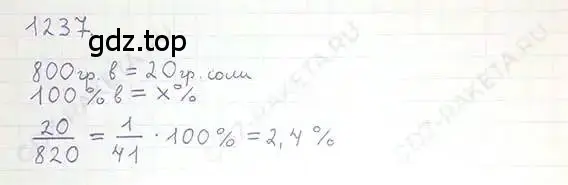 1237.
gdz.top
800гр. в = 20гр. соли
100 % в = x %
20/820 = 1/41 · 100 % = 2,4 %
GDZ-RAKETA.RU